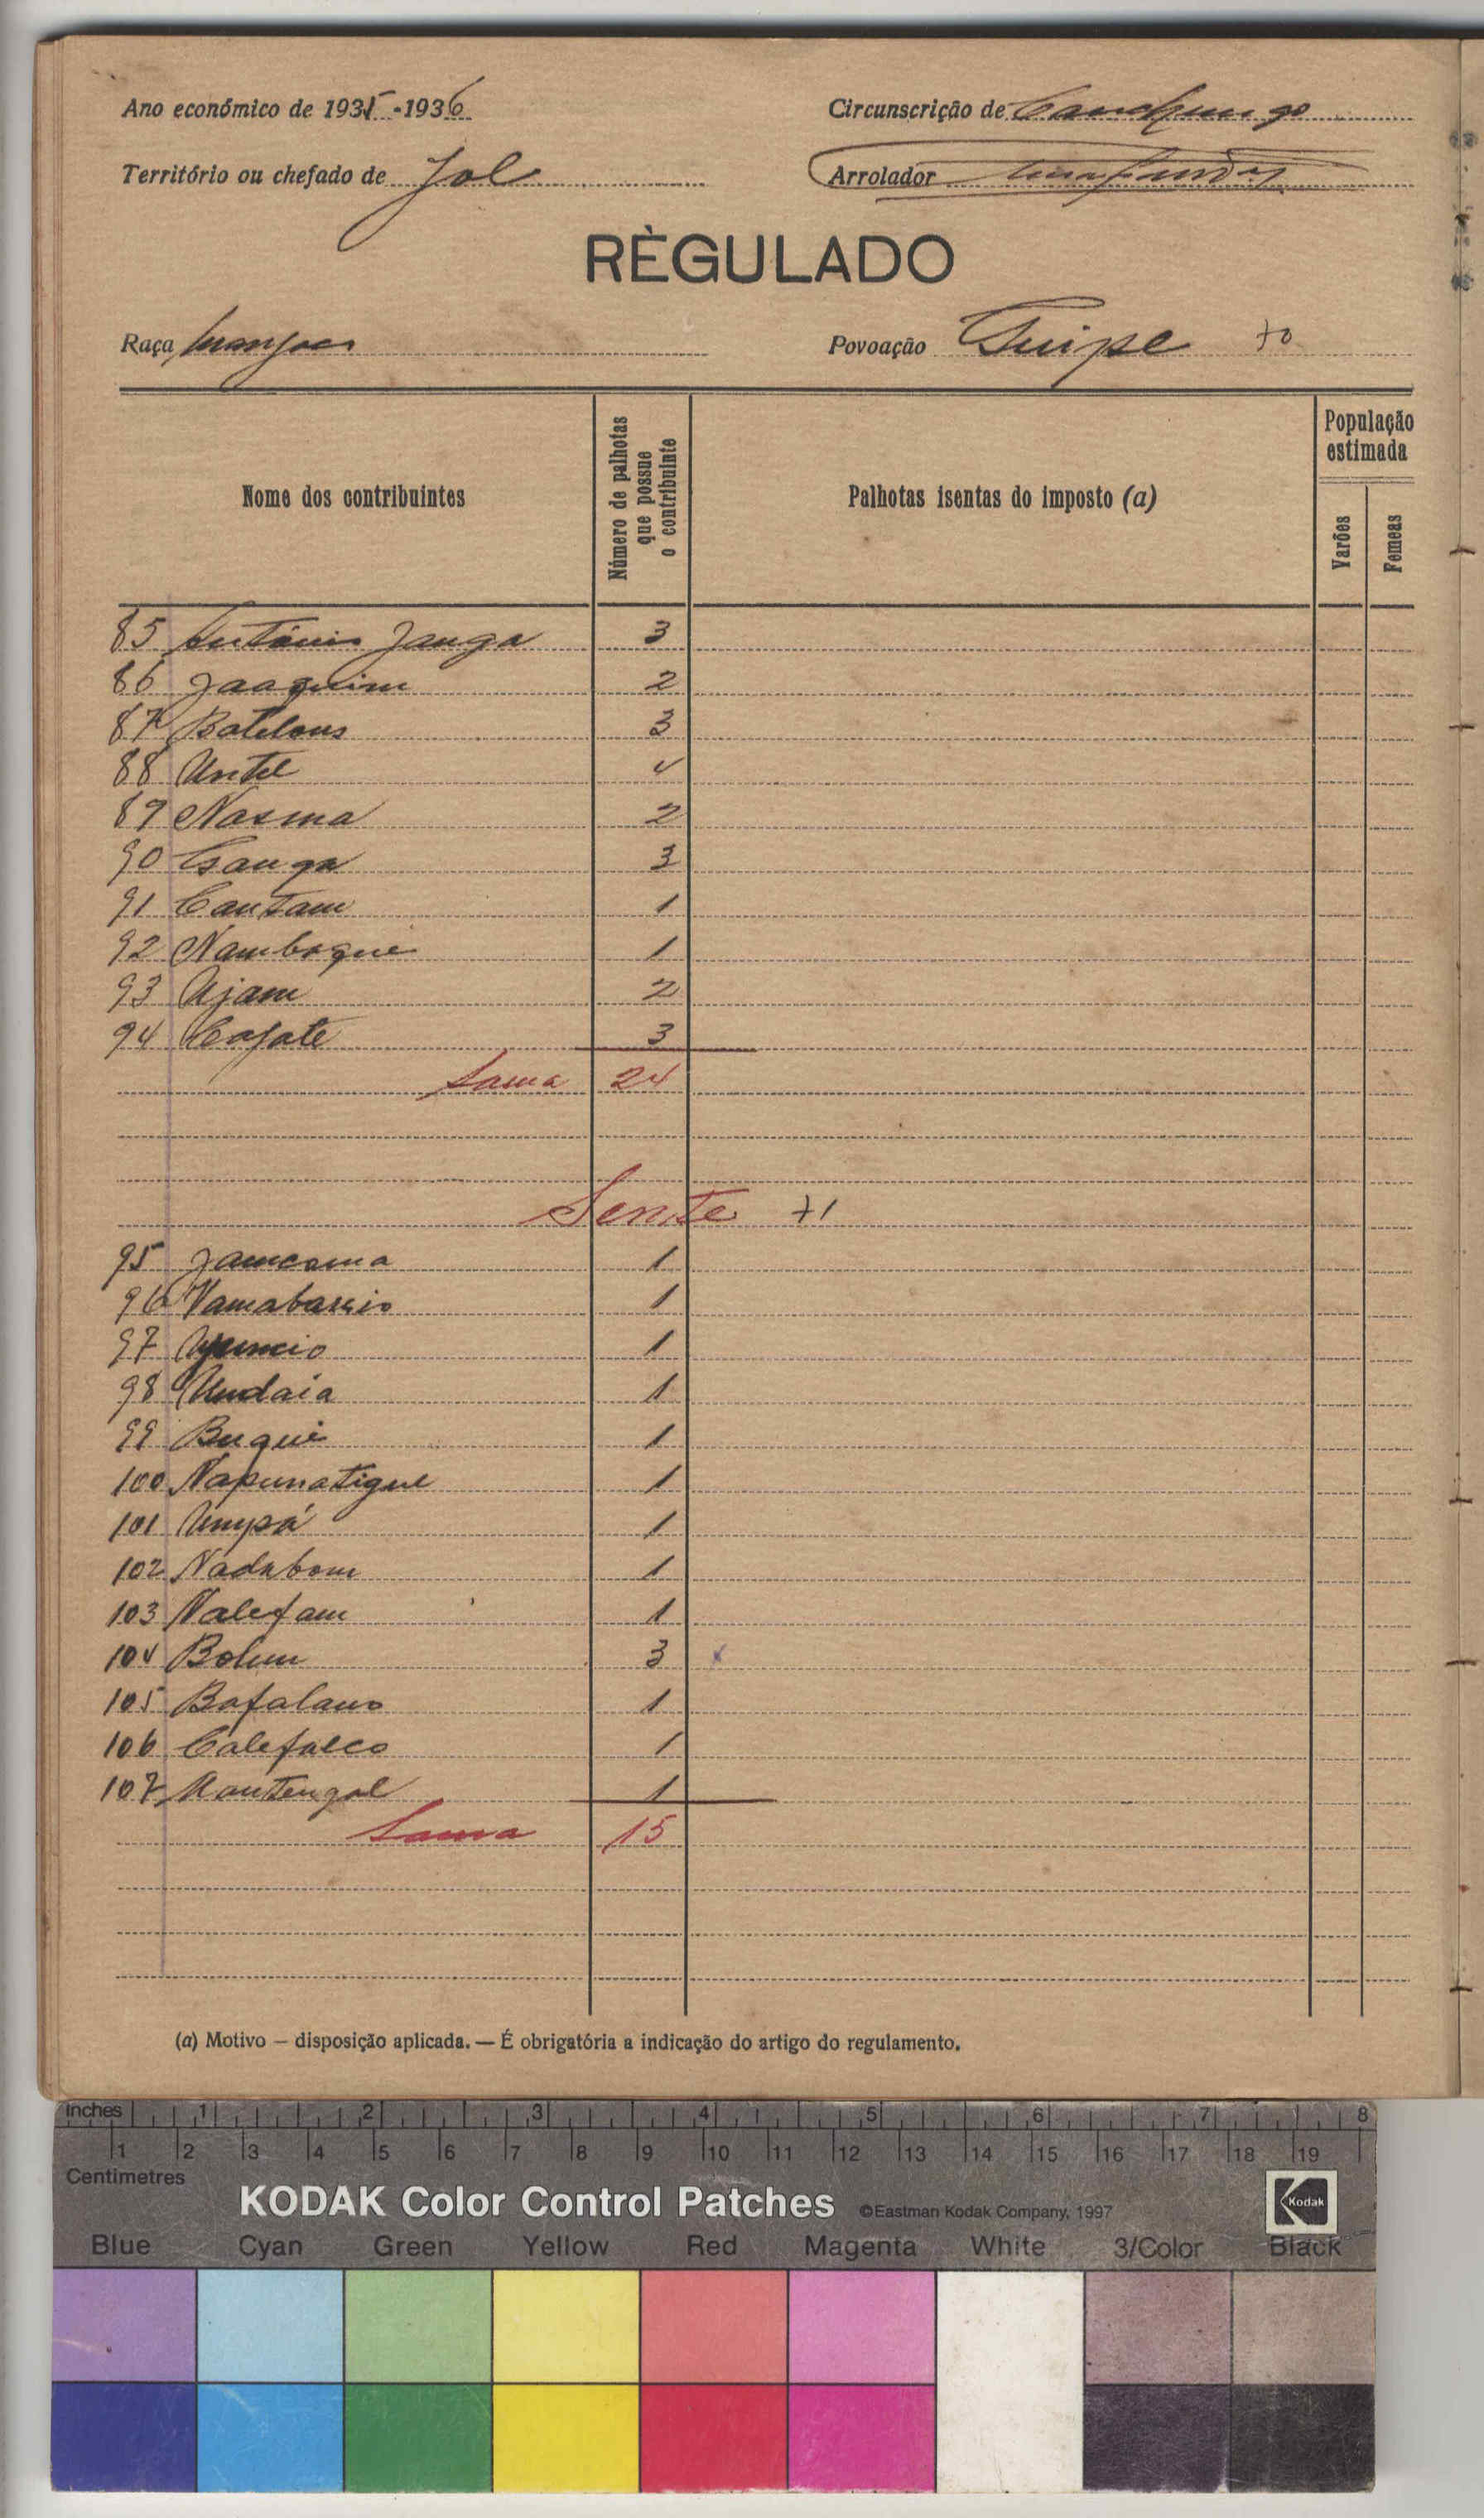 Ano económico de 1935-1936
Circunscrição de Canchungo
Território ou chefado de Jol
Arrolador
RÈGULADO
Raça Manjaca
Povoação Tuipe 70
Nome dos contribuintes
Número de palhotas que possue o contribuinte
Palhotas isentas do imposto (a)
População estimada
Varões
Femeas
85 António Janga 3
86 Jaaquim 2
87 Batelous 3
88 Untel 4
89 Nasma 2
90 Ganga 3
91 Cantam 1
92 Namboque 1
93 Ujam 2
94 Cafate 3
Soma 24
Sente 71
95 Jamcoma 1
96 Vamabassio 1
97 1
98 Undaia 1
99 Buque 1
100 Napunatigue 1
101 Umpá 1
102 Nadubom 1
103 Nalefam 1
104 Bolum 3
105 Bafalano 1
106 Calefalco 1
107 1
Soma 15
(a) Motivo — disposição aplicada. — É obrigatória a indicação do artigo do regulamento.
Inches 1 2 3 4 5 6 7 8
Centimetres 1 2 3 4 5 6 7 8 9 10 11 12 13 14 15 16 17 18 19
KODAK Color Control Patches ©Eastman Kodak Company, 1997
Kodak
Blue Cyan Green Yellow Red Magenta White 3/Color Black